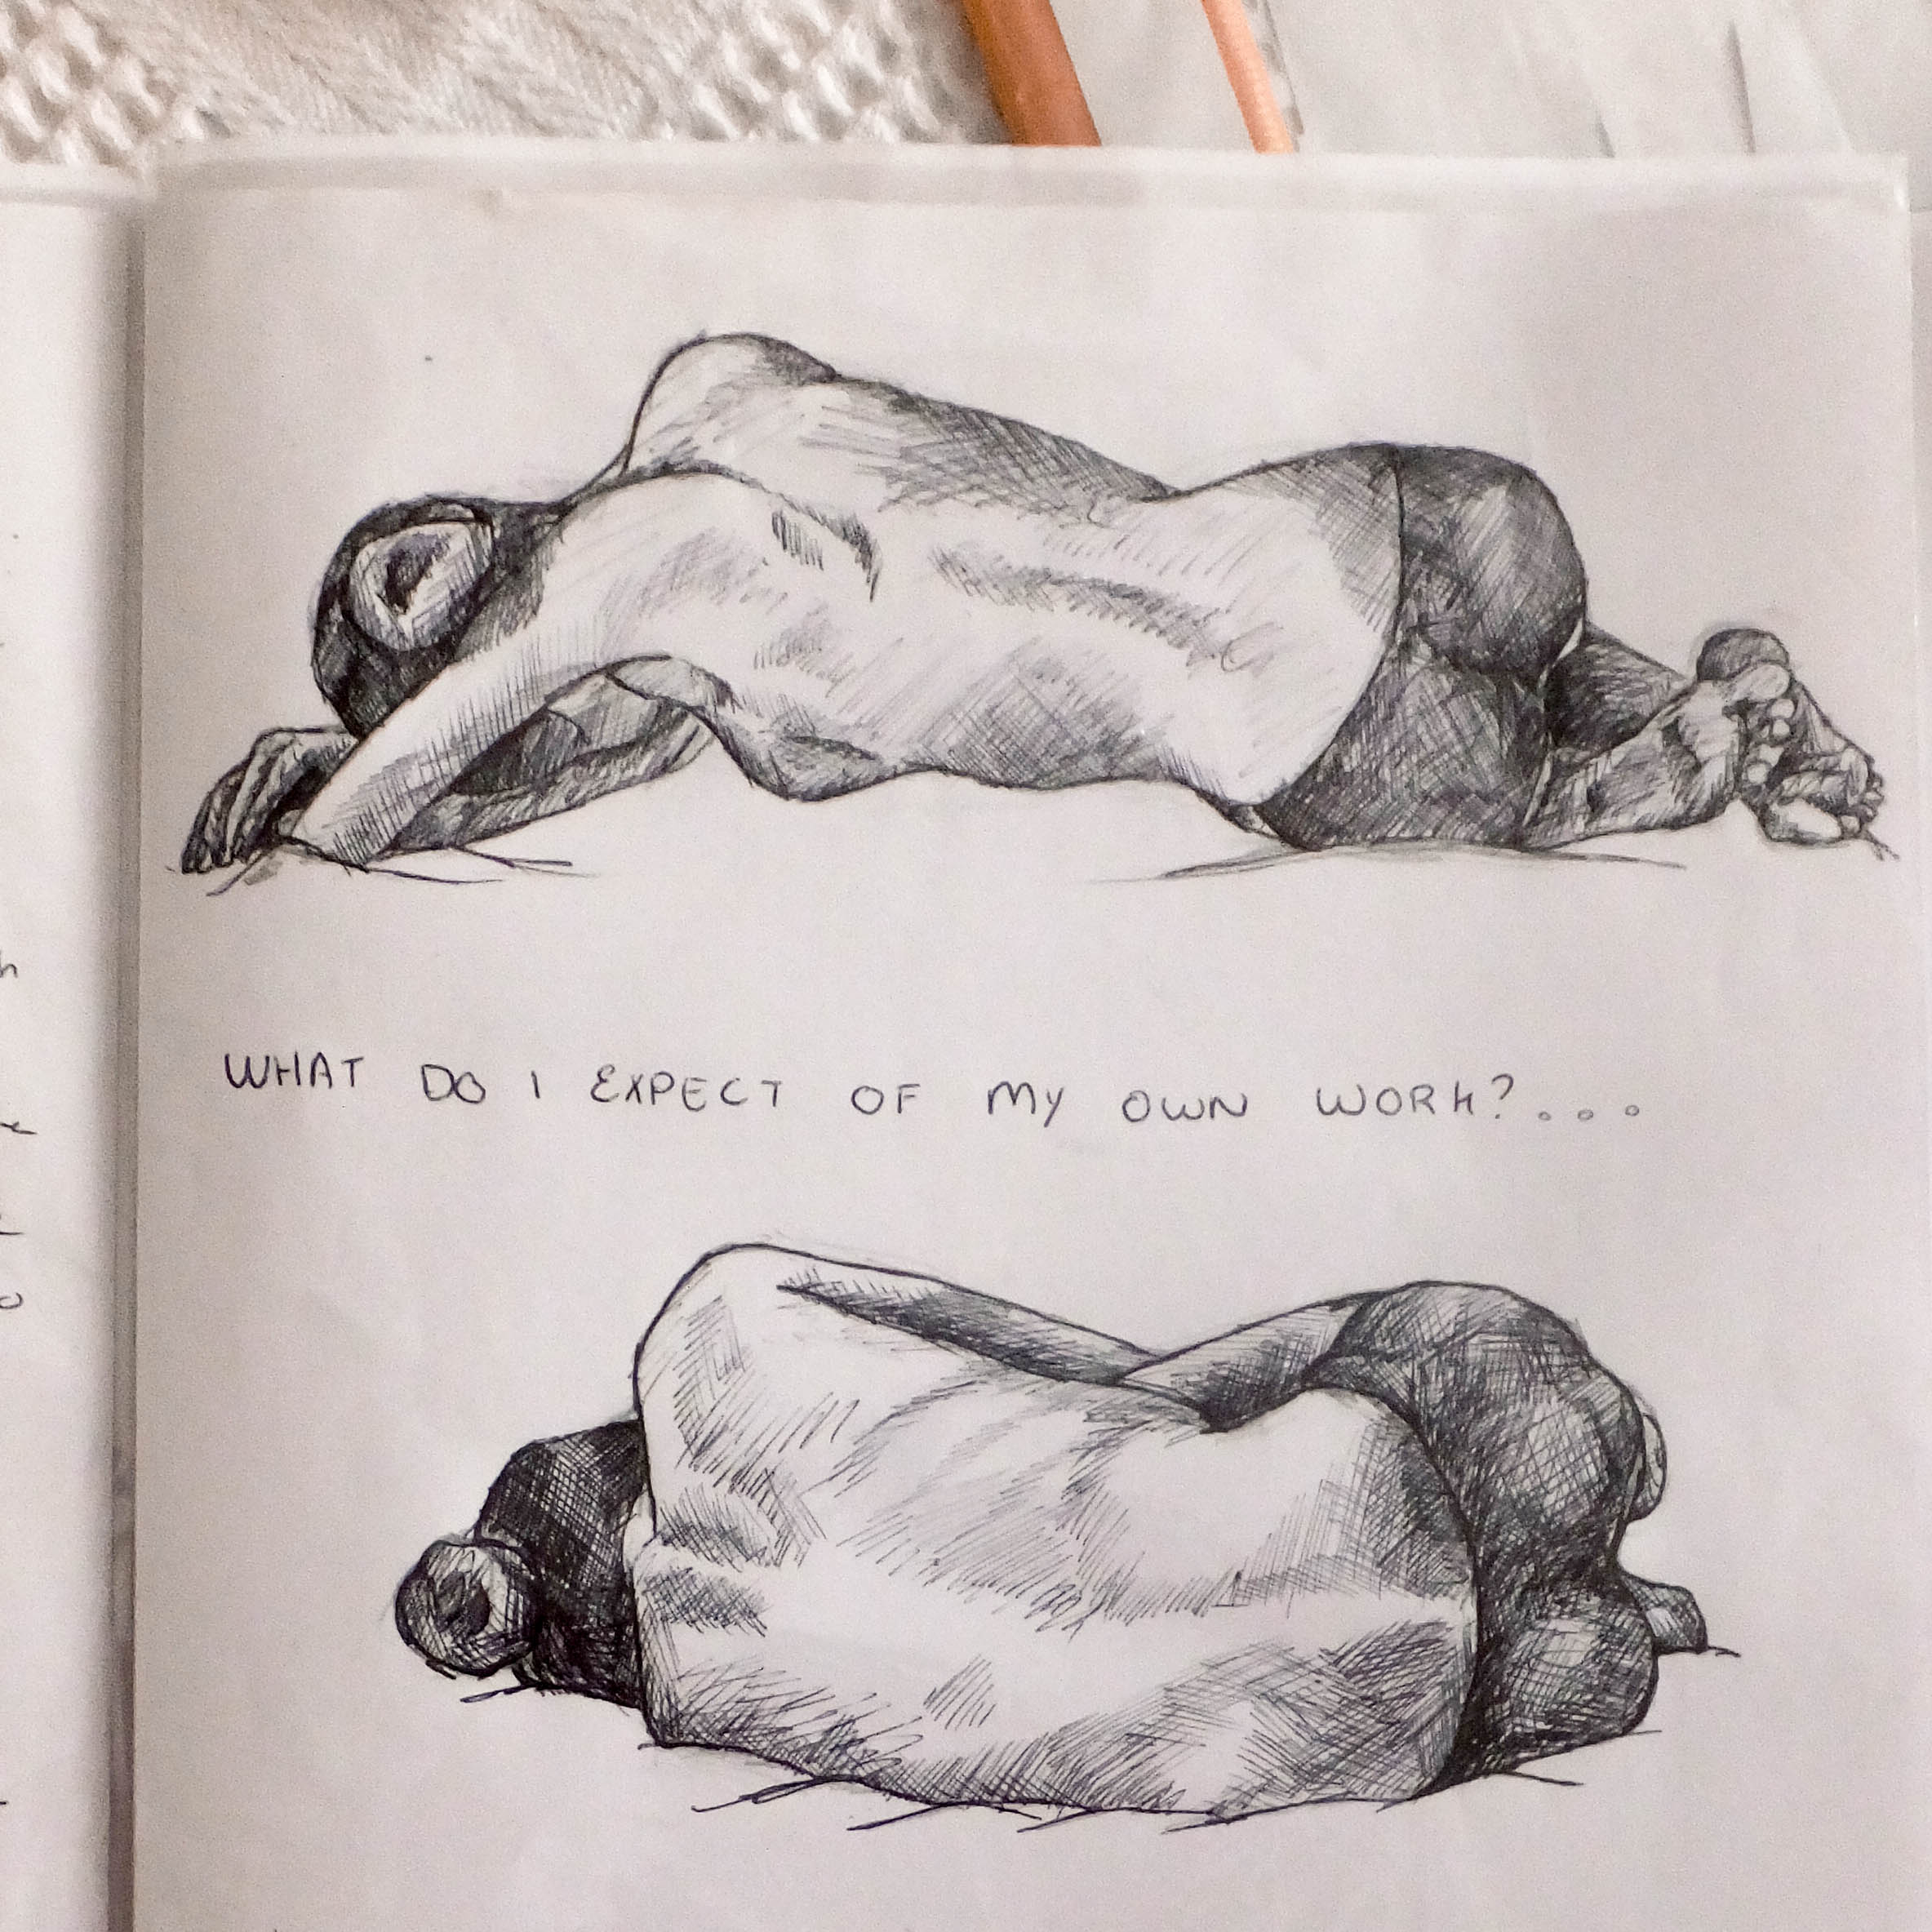 WHAT DO I EXPECT OF MY OWN WORK?...